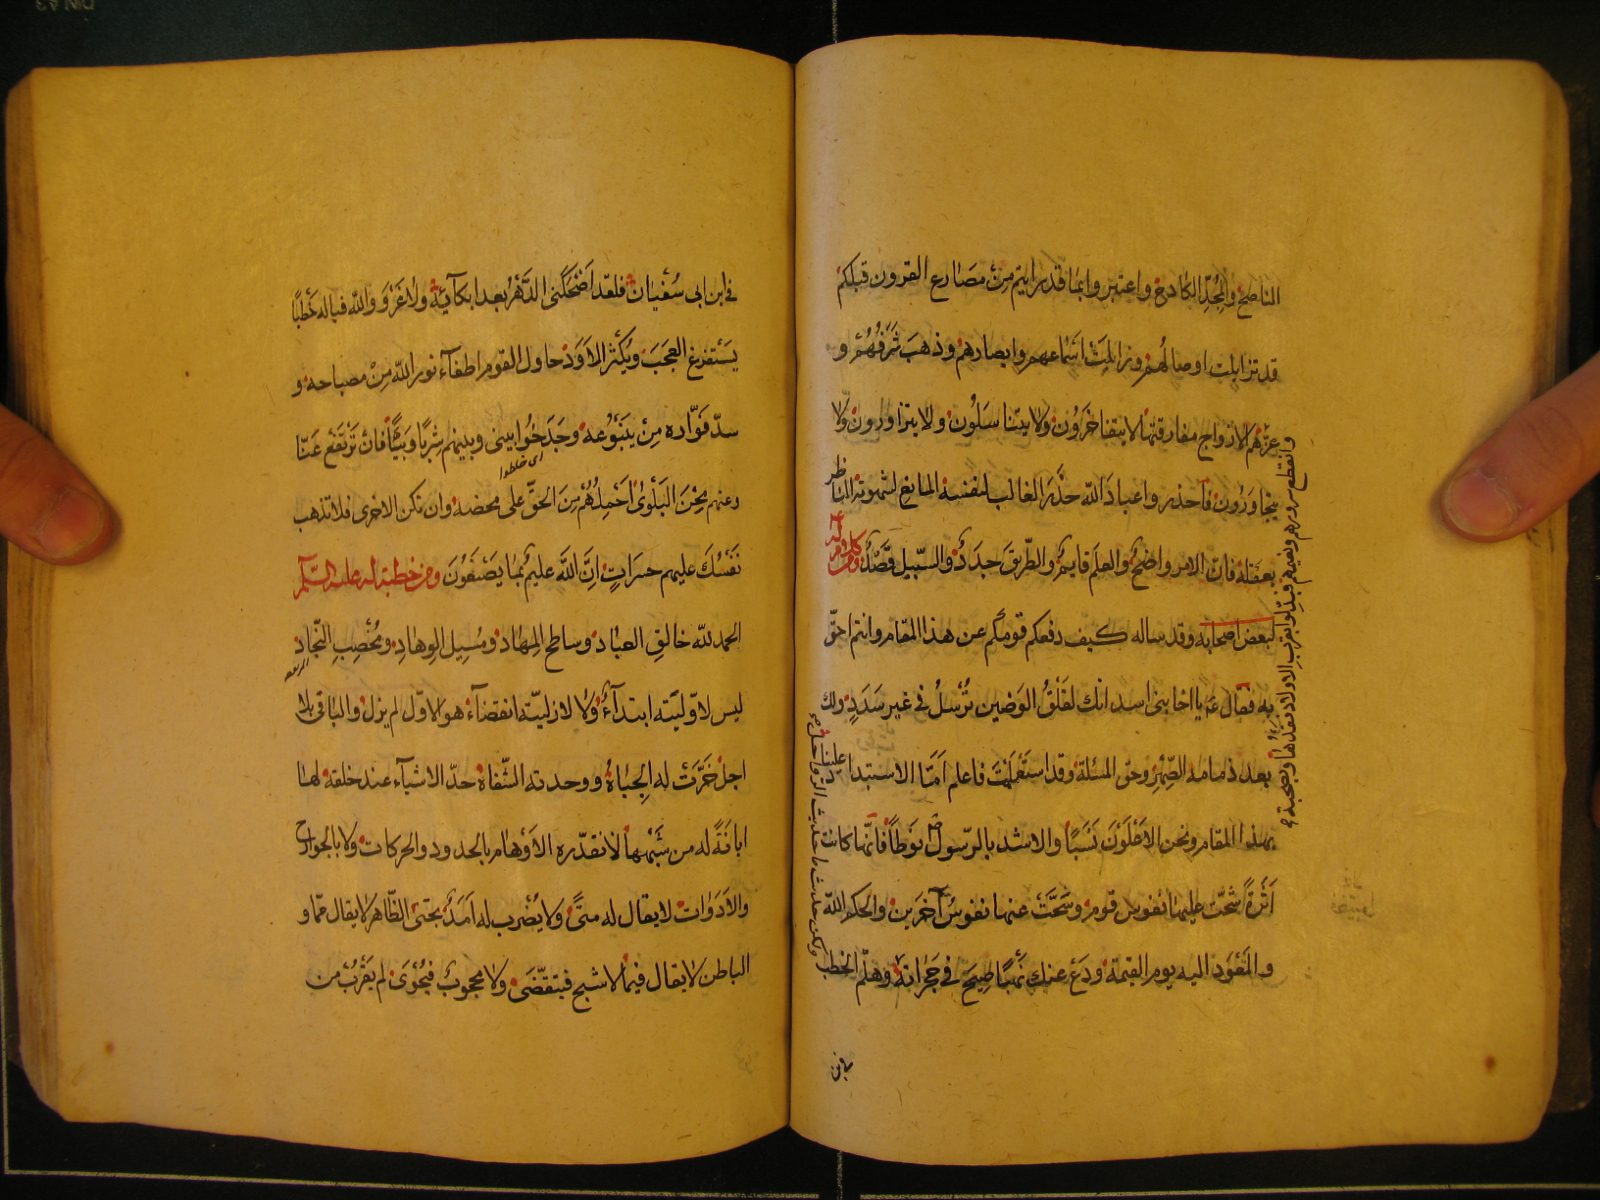 الناصح والمُجِدِّ الكادح واعتبروا بما قد رايتم مِن مصَارع القرون قبلكم
قد تزايلت اوصالُهم وزالت اسماعهم وابصارهم وذهبَ شَرَفُهُم و
عزّهم
وانقطع سرورهم ونعيمهم فبدلوا بقرب الاولاد فقدها وبصحبة
الازواج مفارقتها لا يتفاخرون ولا يتناسَلون ولا يتزاورون ولا
يتجاورون فاحذروا عبادَ الله حذَرَ الغالب لنفسه المانع لشهوته الناظر
بعقله فان الامر واضحٌ والعلَم قايمٌ والطّريقَ جدَدٌ والسّبيل قَصْدٌ ومن كلام له
لبعض اصحابه وقد ساله كيف دفعكم قومكم عن هذا المقام وانتم احقّ
به فقال ع يا اخا بنى اسد انك لقَلِقُ الوَضين تُرْسِلُ فى غير سَدَدٍ ولك
بعد ذمامة الصِّهر وحق المسئلة وقد استَعلمتَ فاعلم امّا الاستبداد علينا
بهذا المقام ونحن الاعْلَونَ نَسَبًا والاشد بالرّسول ص نوطًا فانّها كانت
اَثَرَةً شحّت عليها نفوس قوم وسَخَتْ عنها نفوسُ آخرين والحكم الله
والمَعْوَد اليه يوم القيمة ودَعْ عنك نَهبًا صِيحَ فى حَجَراته
ولكن حديث ما حديث الرّواحل
وهلمّ الخطب
فى ابن
فى ابن ابى سُفيان فلقد اَضحَكنى الدّهرُ بعد ابكآئه ولا غَرْوَ والله فيا له خَطْبًا
يَستفرغ العَجَبَ ويُكثر الاَوَدَ حاول القوم اطفآء نور الله مِنْ مصباحه و
سدّ فَوّاره مِن يَنبُوعه وجَدَحُوا بينى وبينهم شِرْبًا وَبِيئًا فان تَرتفع عَنّا
اى خلطوا
وعنهم مِحَنُ البَلْوىٰ اَحمِلْهُمْ مِنَ الحقّ على محضه وان تكن الاخرى فلا تذهب
نَفسُكَ عليهم حسراتٍ اِنّ اللهَ عليمٌ بما يَصنَعُونَ ومن خطبة له عليه السّلم
الحمد لله خالقِ العباد وساطح المِهاد ومُسيل الوِهادِ ومُخصِبِ النّجادِ
ليس لاوّليّته ابتدآءٌ ولا لازليّته انقضآء هو الاوّل لم يزل والباقى بلا
اجل خرّت له الجِباهُ ووحدته الشّفاهُ حدّ الاشيآء عند خلقه لها
ابانَةً له من شَبَهها لا تقدّره الاَوْهام بالحدود والحركات ولا بالجوارح
والادَوات لا يقال له متىٰ ولا يُضرب له اَمَدٌ بحتى الظّاهر لا يقال ممّا و
الباطن لا يقال فيما لا شبح فيتقضّى ولا محجوبٌ فيُحْوَى لم يَقْرُبْ من